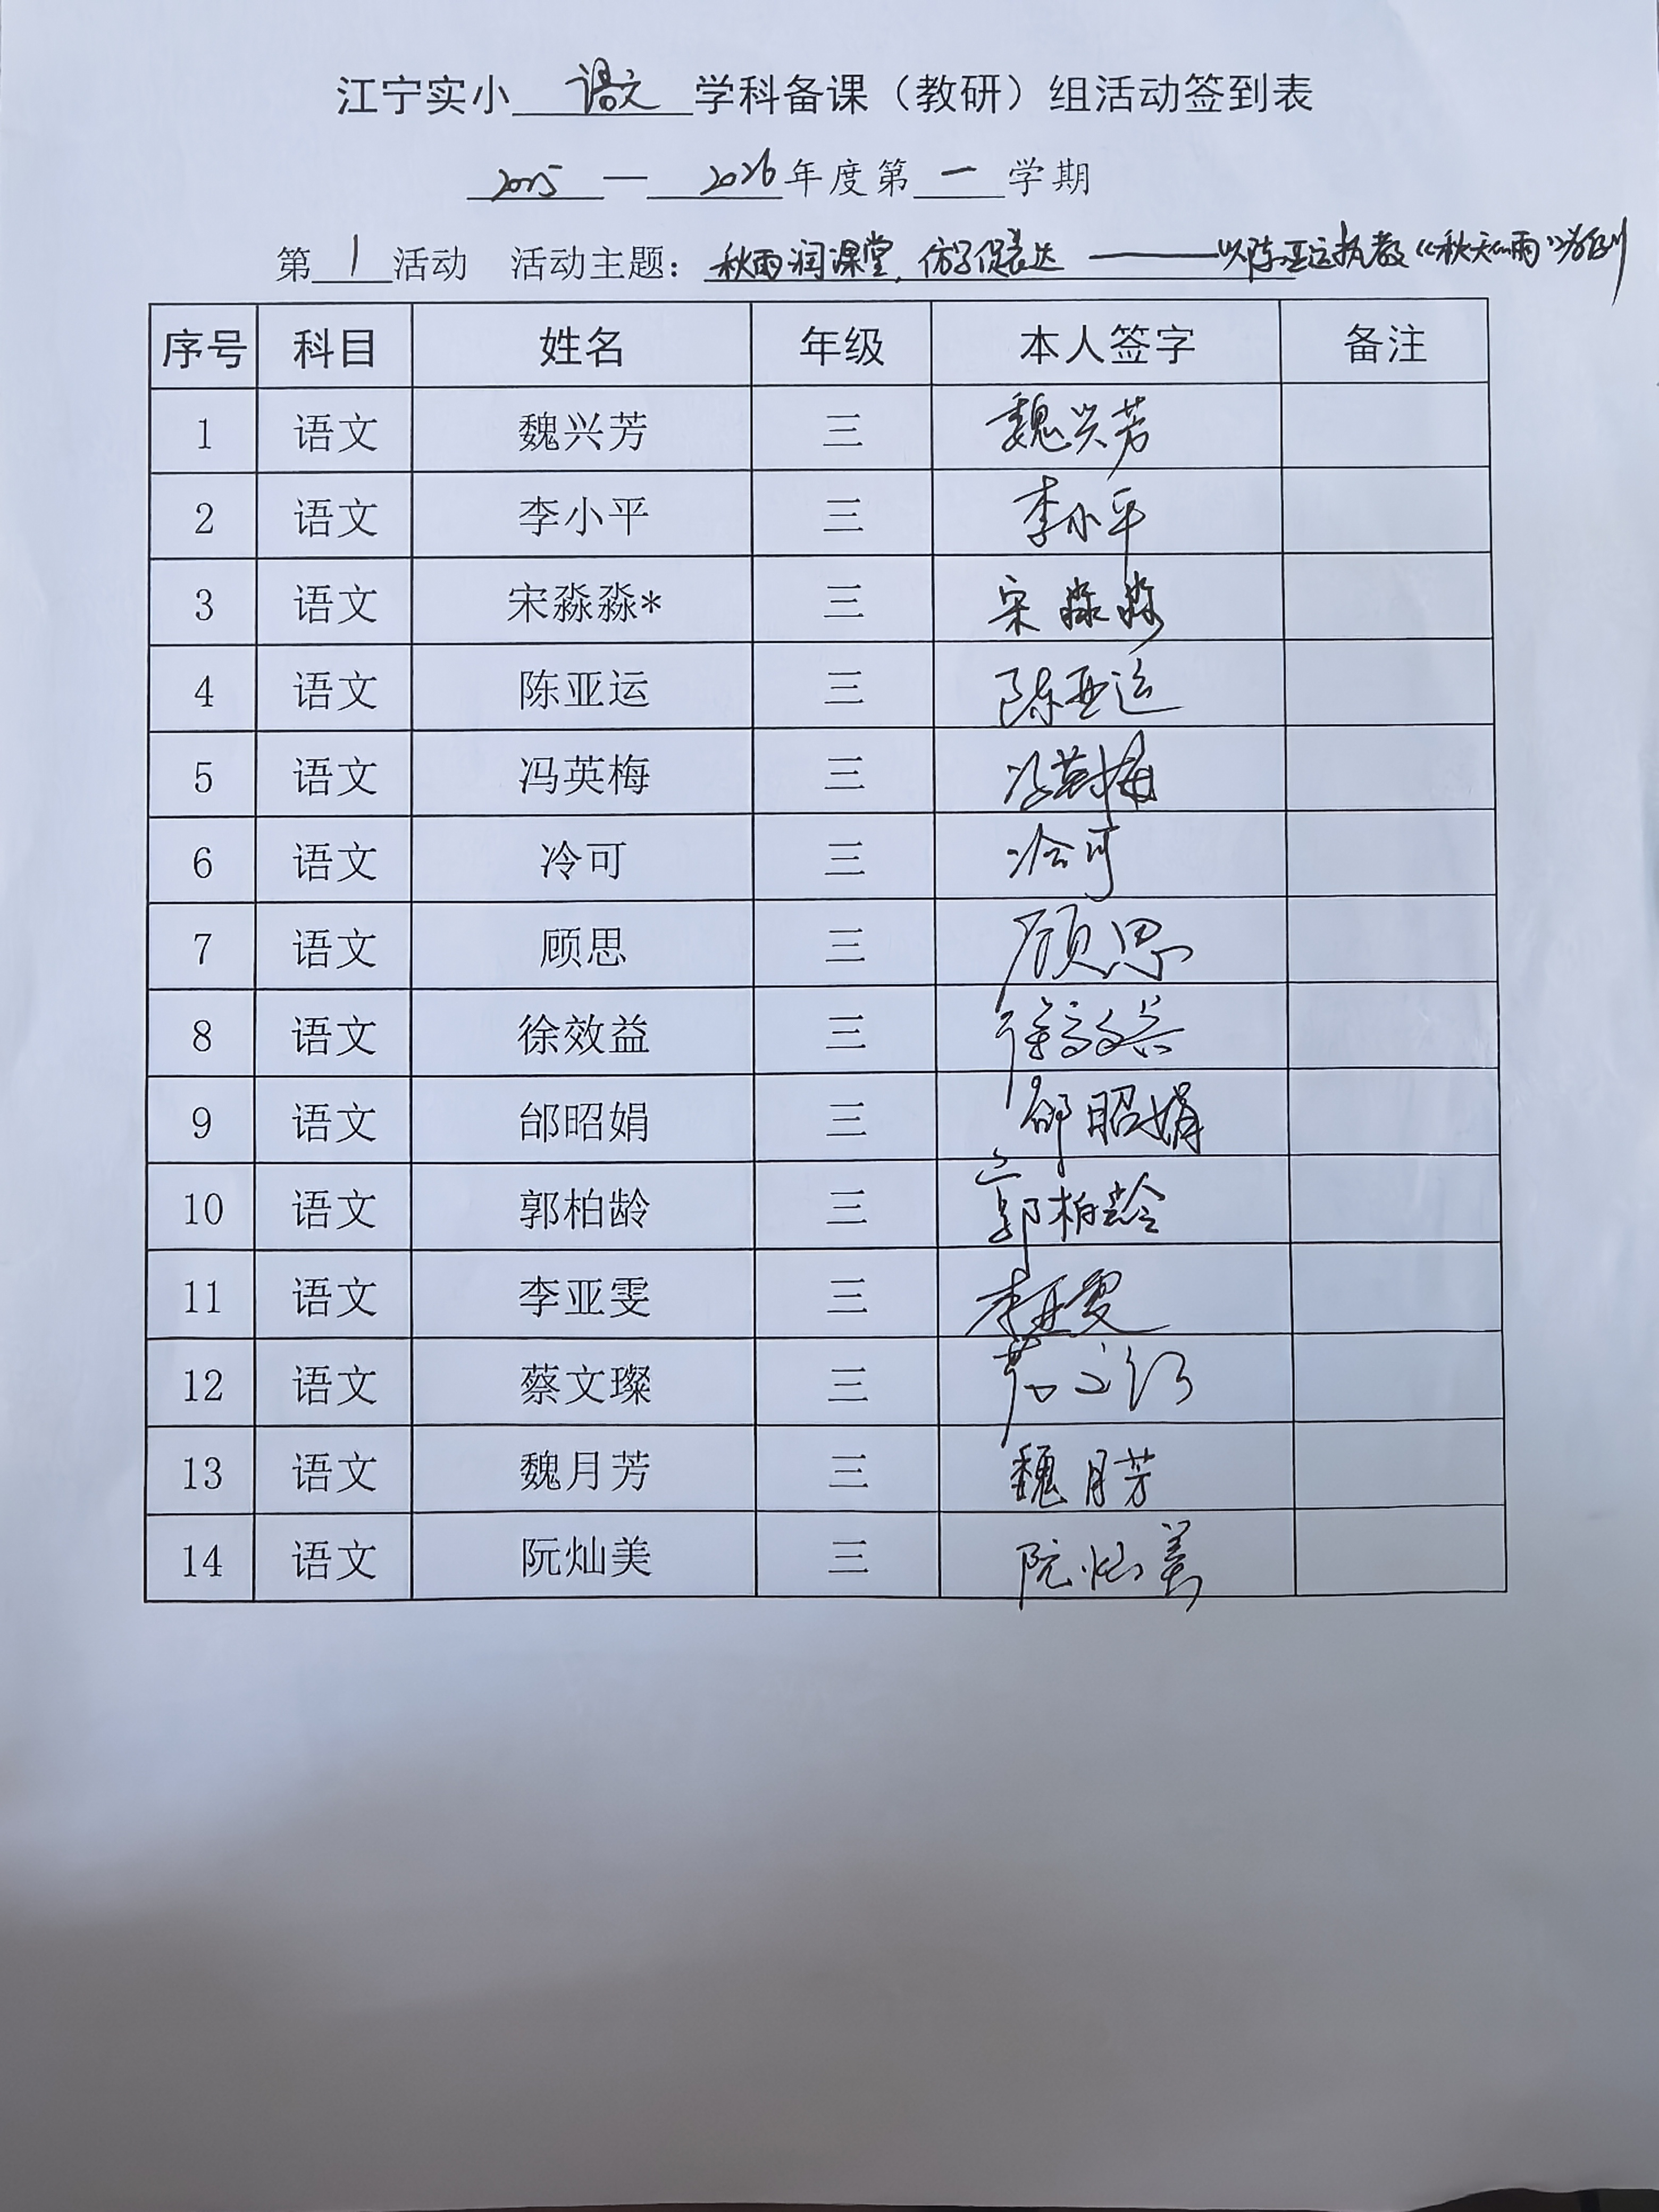 江宁实小 语文 学科备课（教研）组活动签到表
2025 — 2026 年度第 一 学期
第 1 活动 活动主题：秋雨润课堂，仿写促表达 ——以陈亚运执教《秋天的雨》为例
序号 科目 姓名 年级 本人签字 备注
1 语文 魏兴芳 三 魏兴芳
2 语文 李小平 三 李小平
3 语文 宋淼淼* 三 宋淼淼
4 语文 陈亚运 三 陈亚运
5 语文 冯英梅 三 冯英梅
6 语文 冷可 三 冷可
7 语文 顾思 三 顾思
8 语文 徐效益 三 徐效益
9 语文 邰昭娟 三 邰昭娟
10 语文 郭柏龄 三 郭柏龄
11 语文 李亚雯 三 李亚雯
12 语文 蔡文璨 三
13 语文 魏月芳 三 魏月芳
14 语文 阮灿美 三 阮灿美